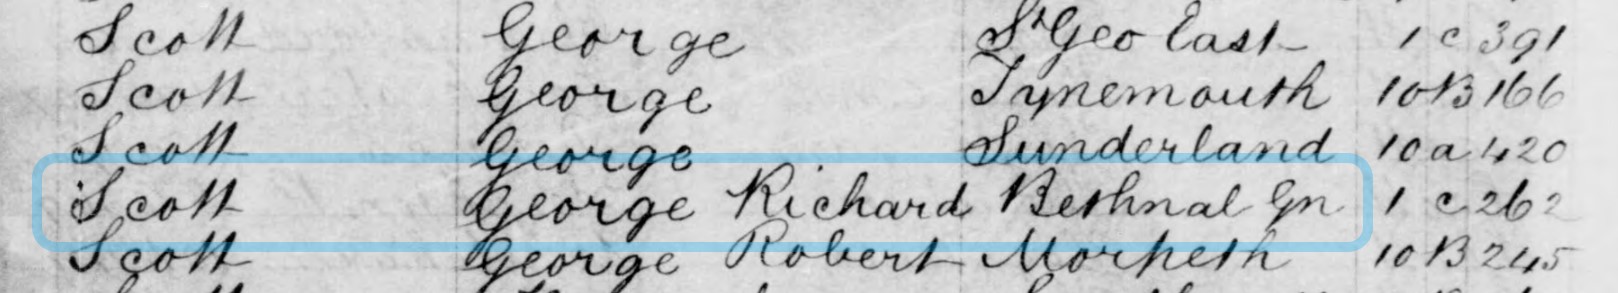 Scott George St Geo East 1 c 391
Scott George Tynemouth 10 B 166
Scott George Sunderland 10 a 420
Scott George Richard Bethnal Gn 1 c 262
Scott George Robert Morpeth 10 B 245